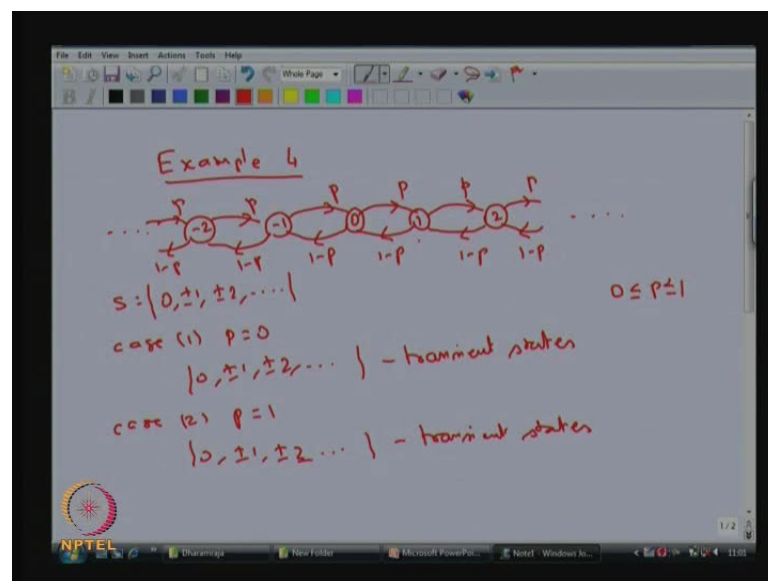 File Edit View Insert Actions Tools Help
Whole Page
B I
Example 4
p p p p p p
.... -2 -1 0 1 2 ....
1-p 1-p 1-p 1-p 1-p 1-p
S = { 0, ±1, ±2, .... } 0 ≤ p ≤ 1
case (1) p = 0
{ 0, ±1, ±2, ... } - transient states
case (2) p = 1
{ 0, ±1, ±2 ... } - transient states
1/2
NPTEL
Dharamraja New Folder Microsoft PowerPoi... Note1 - Windows Jo... 11:01